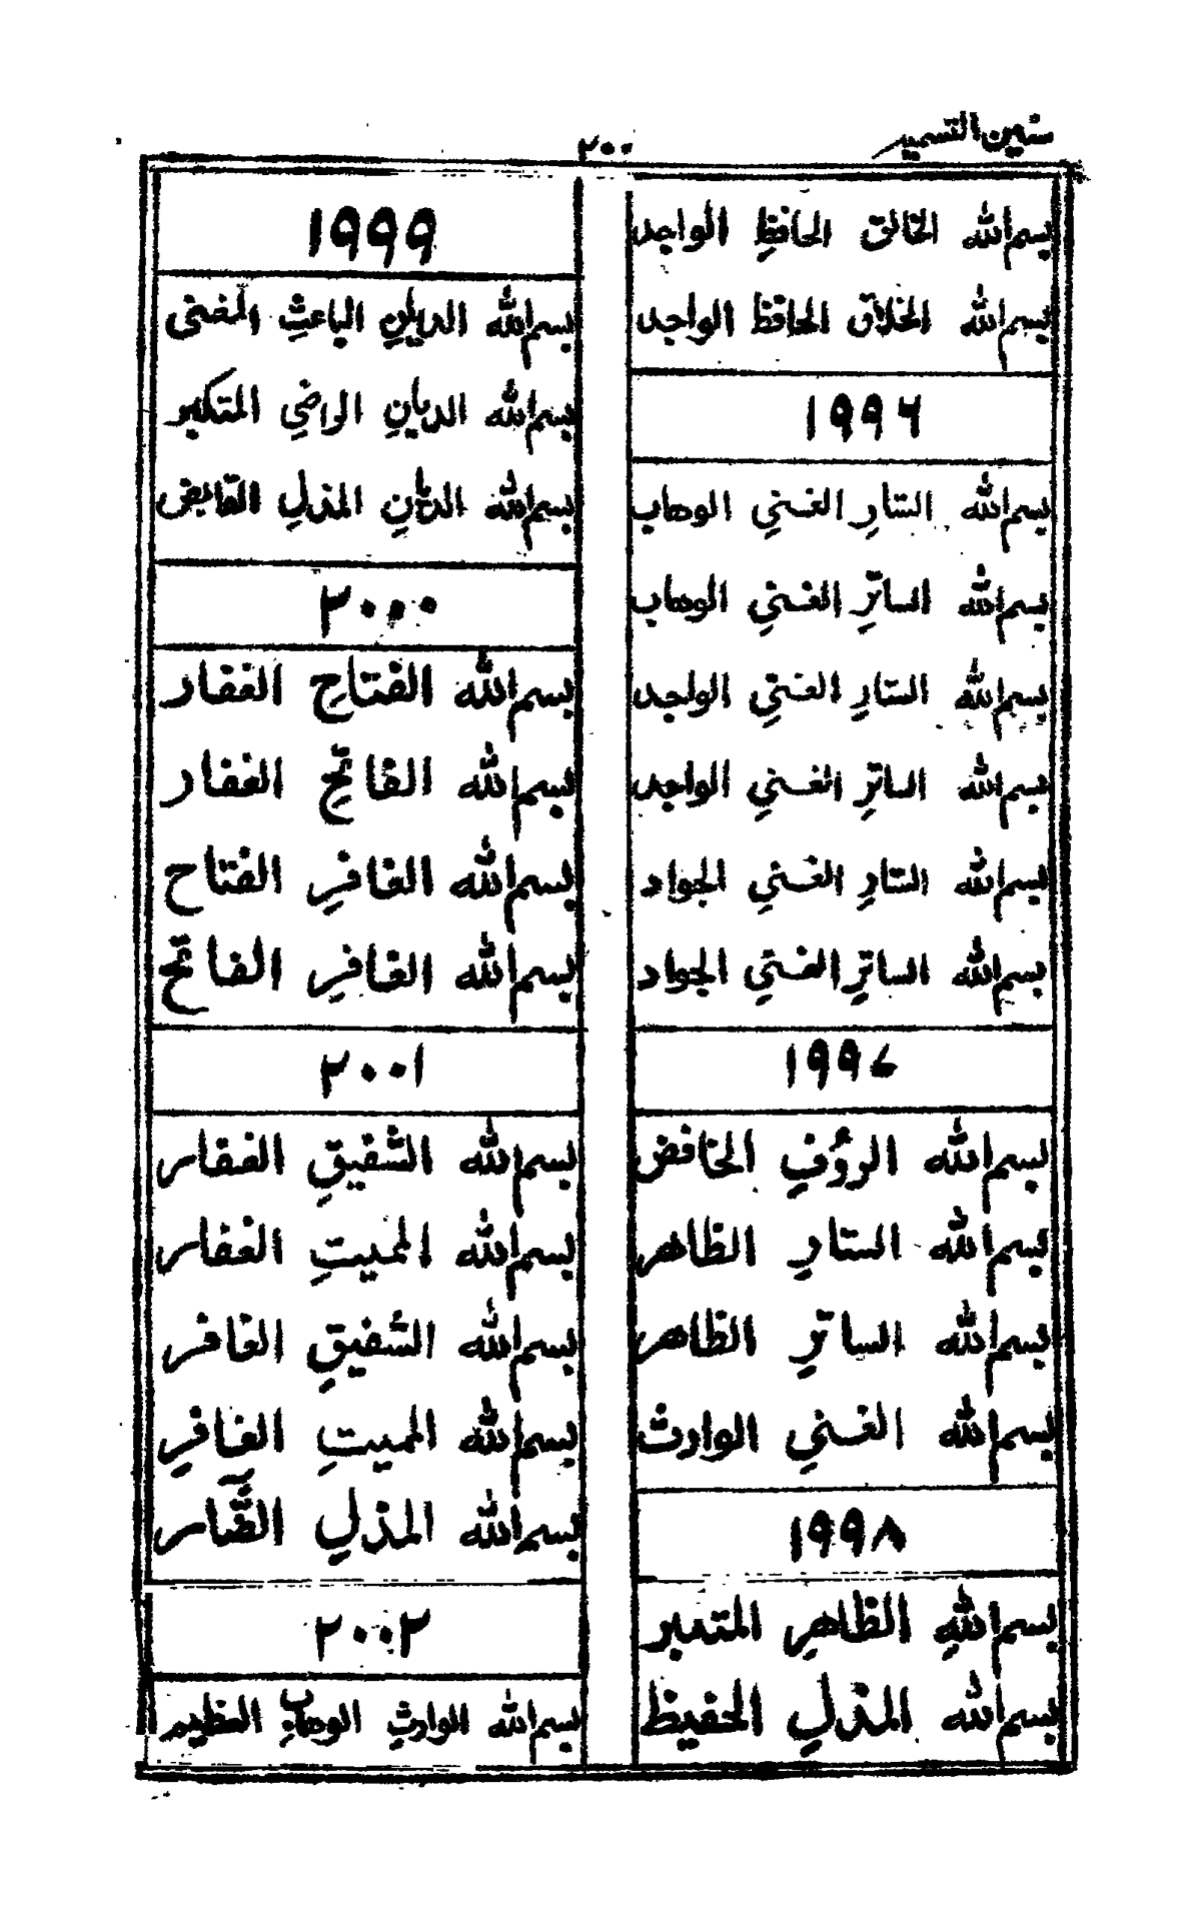 سنين التسمير
٢٠٠
بسم الله الخالق الحافظِ الواجد
بسم الله الخلاق الحافظ الواجد
١٩٩٦
بسم الله الستارِ الغنيِ الوهاب
بسم الله الساترِ الغنيِ الوهاب
بسم الله الستارِ الغنيِ الواجد
بسم الله الساترِ الغنيِ الواجد
بسم الله الستارِ الغنيِ الجواد
بسم الله الساترِ الغنيِ الجواد
١٩٩٧
بسم الله الرؤفِ الخافض
بسم الله الستارِ الظاهر
بسم الله الساترِ الظاهر
بسم الله الغنيِ الوارث
١٩٩٨
بسم اللهِ الظاهرِ المتكبر
بسم الله المذلِ الحفيظ
١٩٩٩
بسم الله الديانِ الباعثِ المغنى
بسم الله الديانِ الراضيِ المتكبر
بسم الله الديانِ المذلِ القابض
٢٠٠٠
بسم الله الفتاحِ الغفار
بسم الله الفاتحِ الغفار
بسم الله الغافرِ الفتاح
بسم الله الغافرِ الفاتح
٢٠٠١
بسم الله الشفيقِ الغفار
بسم الله المميتِ الغفار
بسم الله الشفيقِ الغافر
بسم الله المميتِ الغافرِ
بسم الله المذلِ الضَّآر
٢٠٠٢
بسم الله الوارثِ الوهابِ العظيم